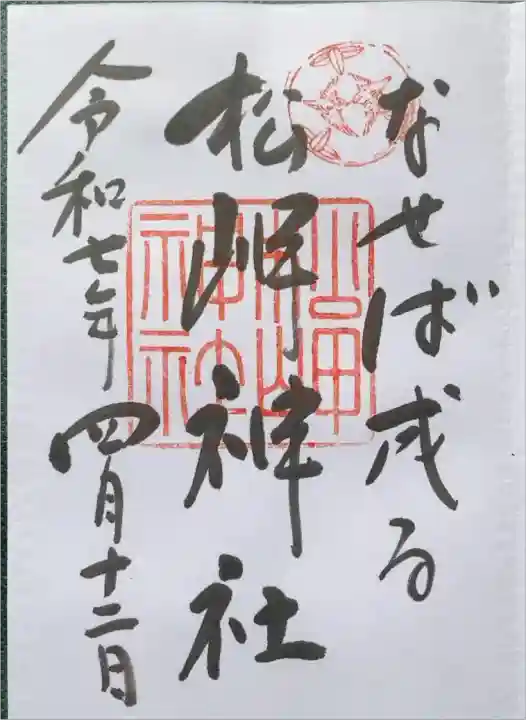 なせば成る
松岬神社
令和七年
四月十二日